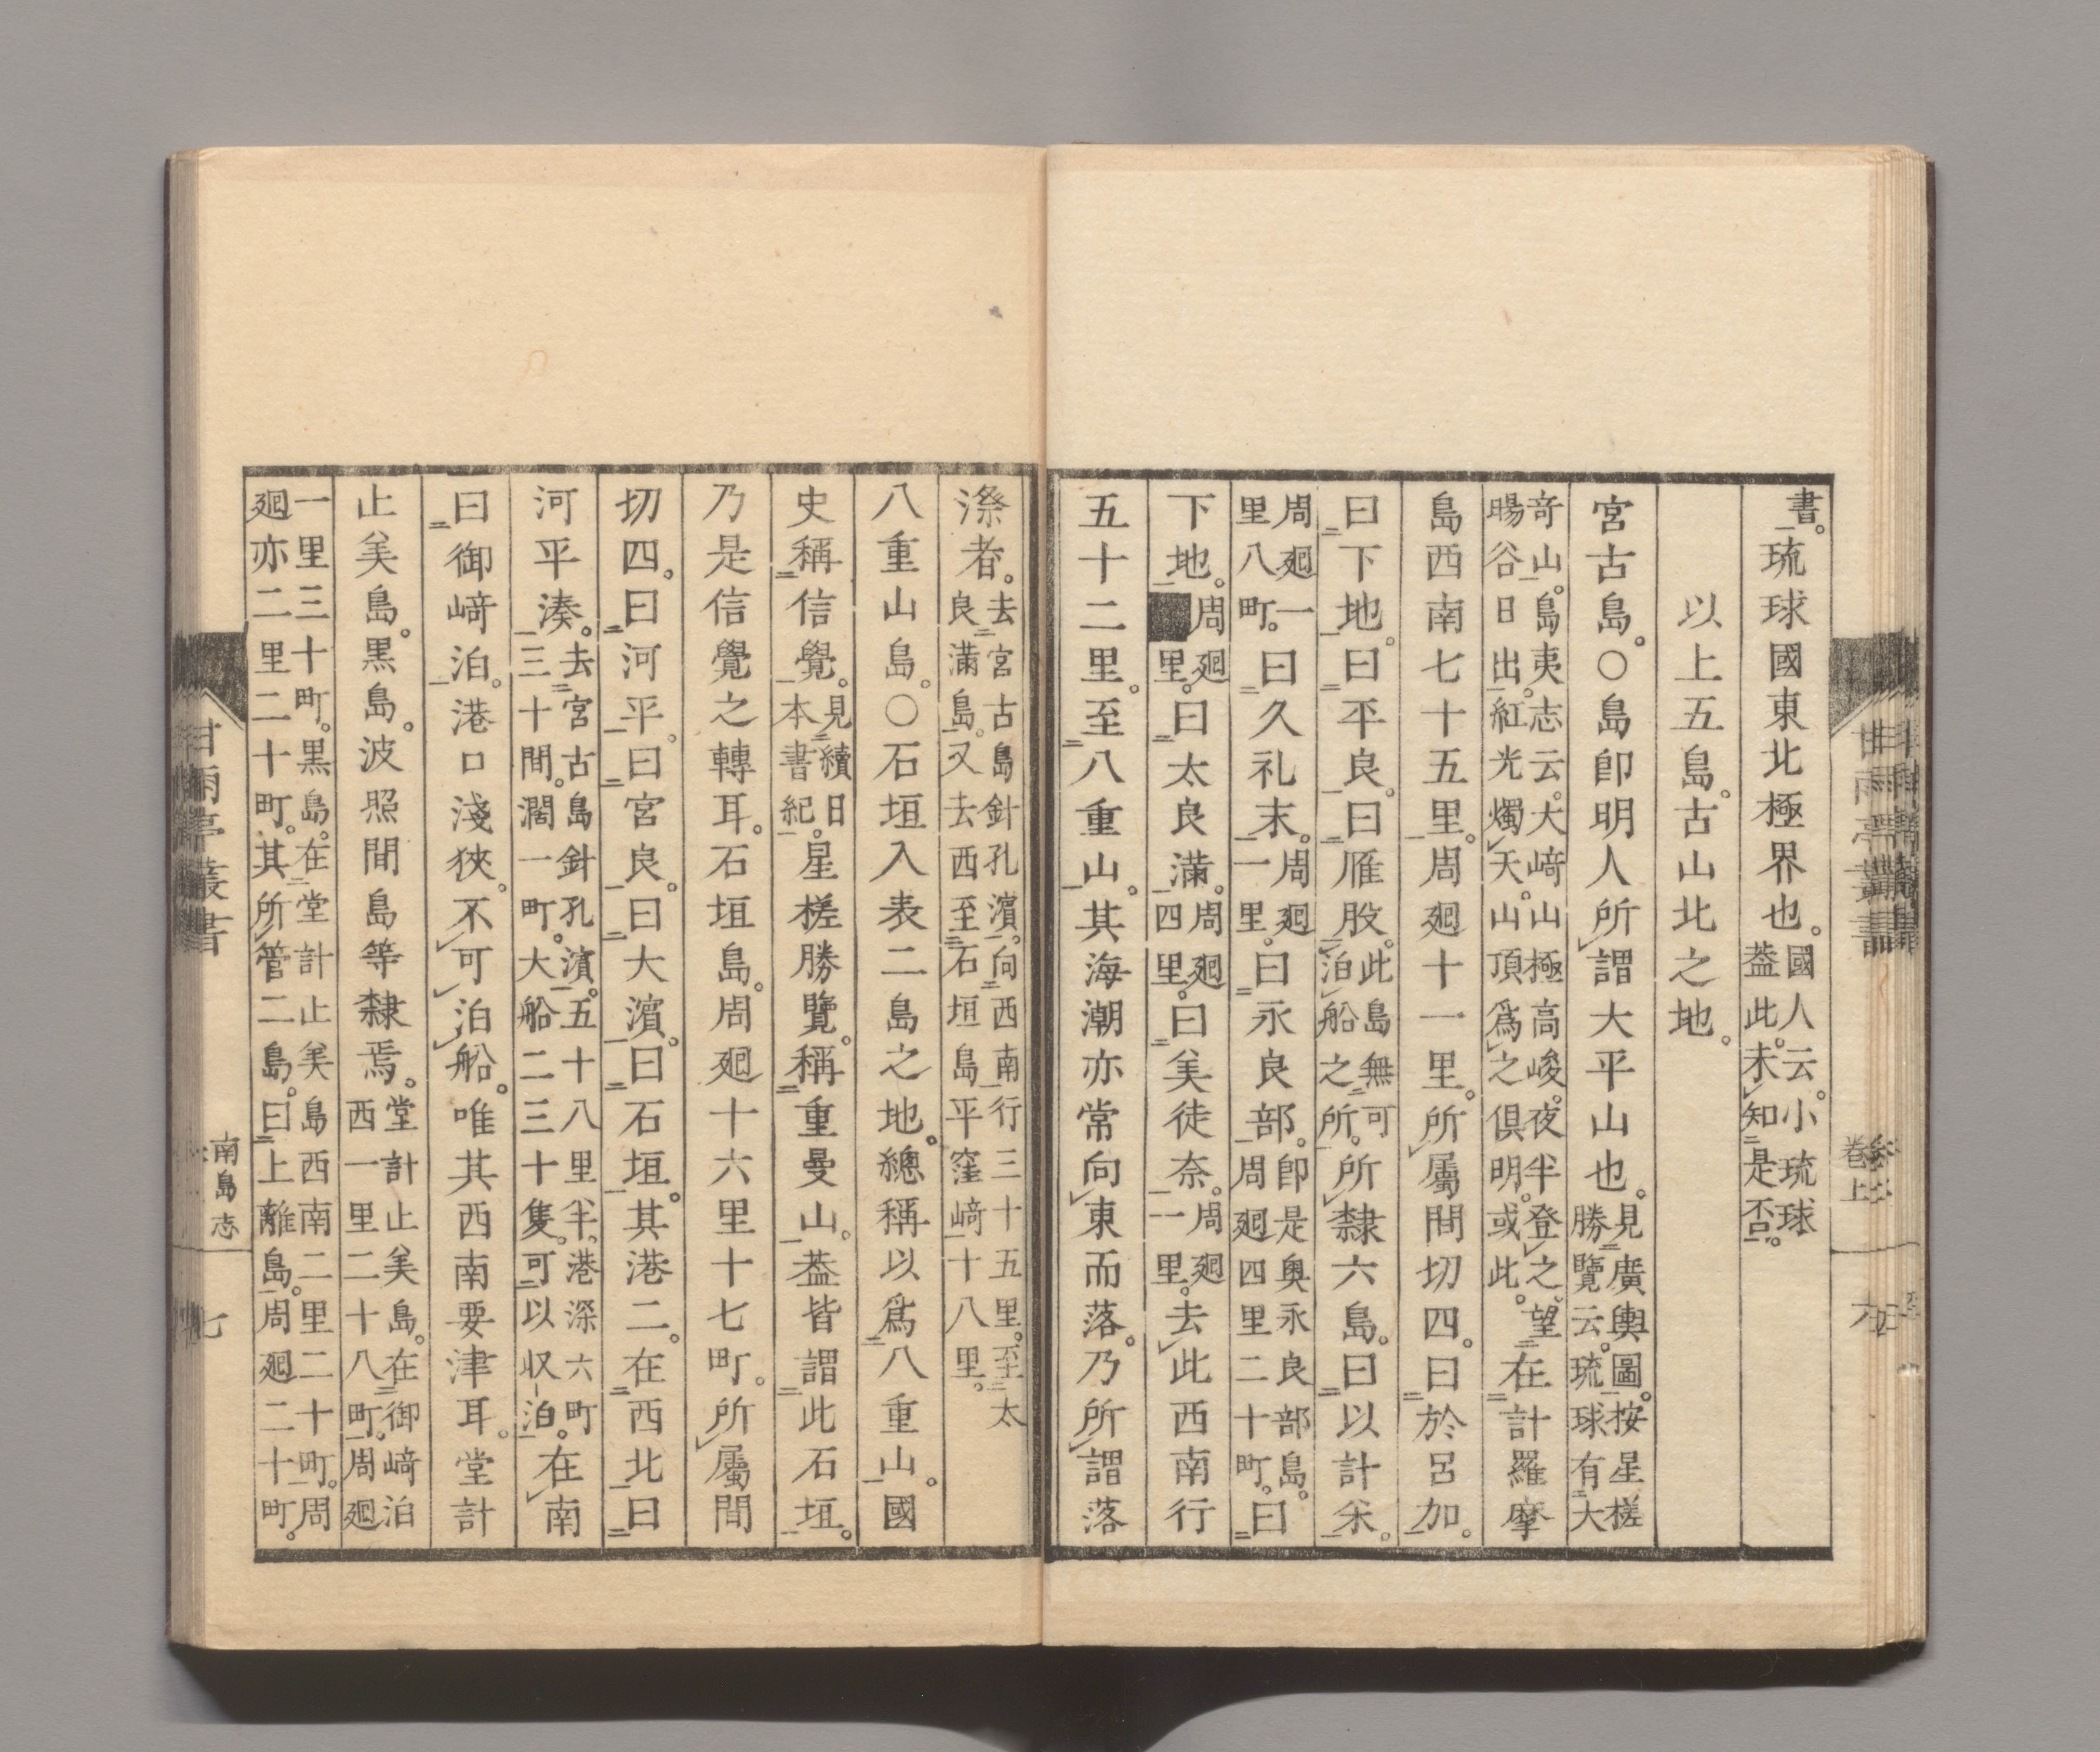 書。
琉球國東北極界也。國人云。小琉球
蓋此。未知是否。
以上五島。古山北之地。
宮古島。○島卽明人所謂大平山也。見廣輿圖。按星槎
勝覽云。琉球有大
奇山。島夷志云。大﨑山極高峻。夜半登之。望
暘谷日出。紅光燭天。山頂爲之俱明。或此。
在計羅摩
島西南七十五里。周廻十一里。所屬間切四。曰於呂加。
曰下地。曰平良。曰雁股。此島無可
泊船之所。
所隸六島。曰以計米。
周廻一
里八町。
曰久礼末。周廻
一里。
曰永良部。卽是奥永良部島。
周廻四里二十町。
曰
下地。周廻
里。
曰太良滿。周廻
四里。
曰美徒奈。周廻
一里。
去此西南行
五十二里。至八重山。其海潮亦常向東而落。乃所謂落
漈者。去宮古島針孔濱。向西南行三十五里。至太
良滿島。又去西至石垣島平窪﨑十八里。
八重山島。○石垣入表二島之地。總稱以爲八重山。國
史稱信覺。見續日
本書紀。
星槎勝覽。稱重曼山。蓋皆謂此石垣。
乃是信覺之轉耳。石垣島。周廻十六里十七町。所屬間
切四。曰河平。曰宮良。曰大濱。曰石垣。其港二。在西北曰
河平湊。去宮古島針孔濱。五十八里半。港深六町
三十間。濶一町。大船二三十隻。可以収泊。
在南
曰御﨑泊。港口淺狹。不可泊船。唯其西南要津耳。堂計
止美島。黒島。波照間島等隸焉。堂計止美島。在御﨑泊
西一里二十八町。周廻
一里三十町。黒島。在堂計止美島西南二里二十町。周
廻亦二里二十町。其所管二島。曰上離島。周廻二十町。
甘雨亭叢書
南島志
七
甘雨亭叢書
卷上